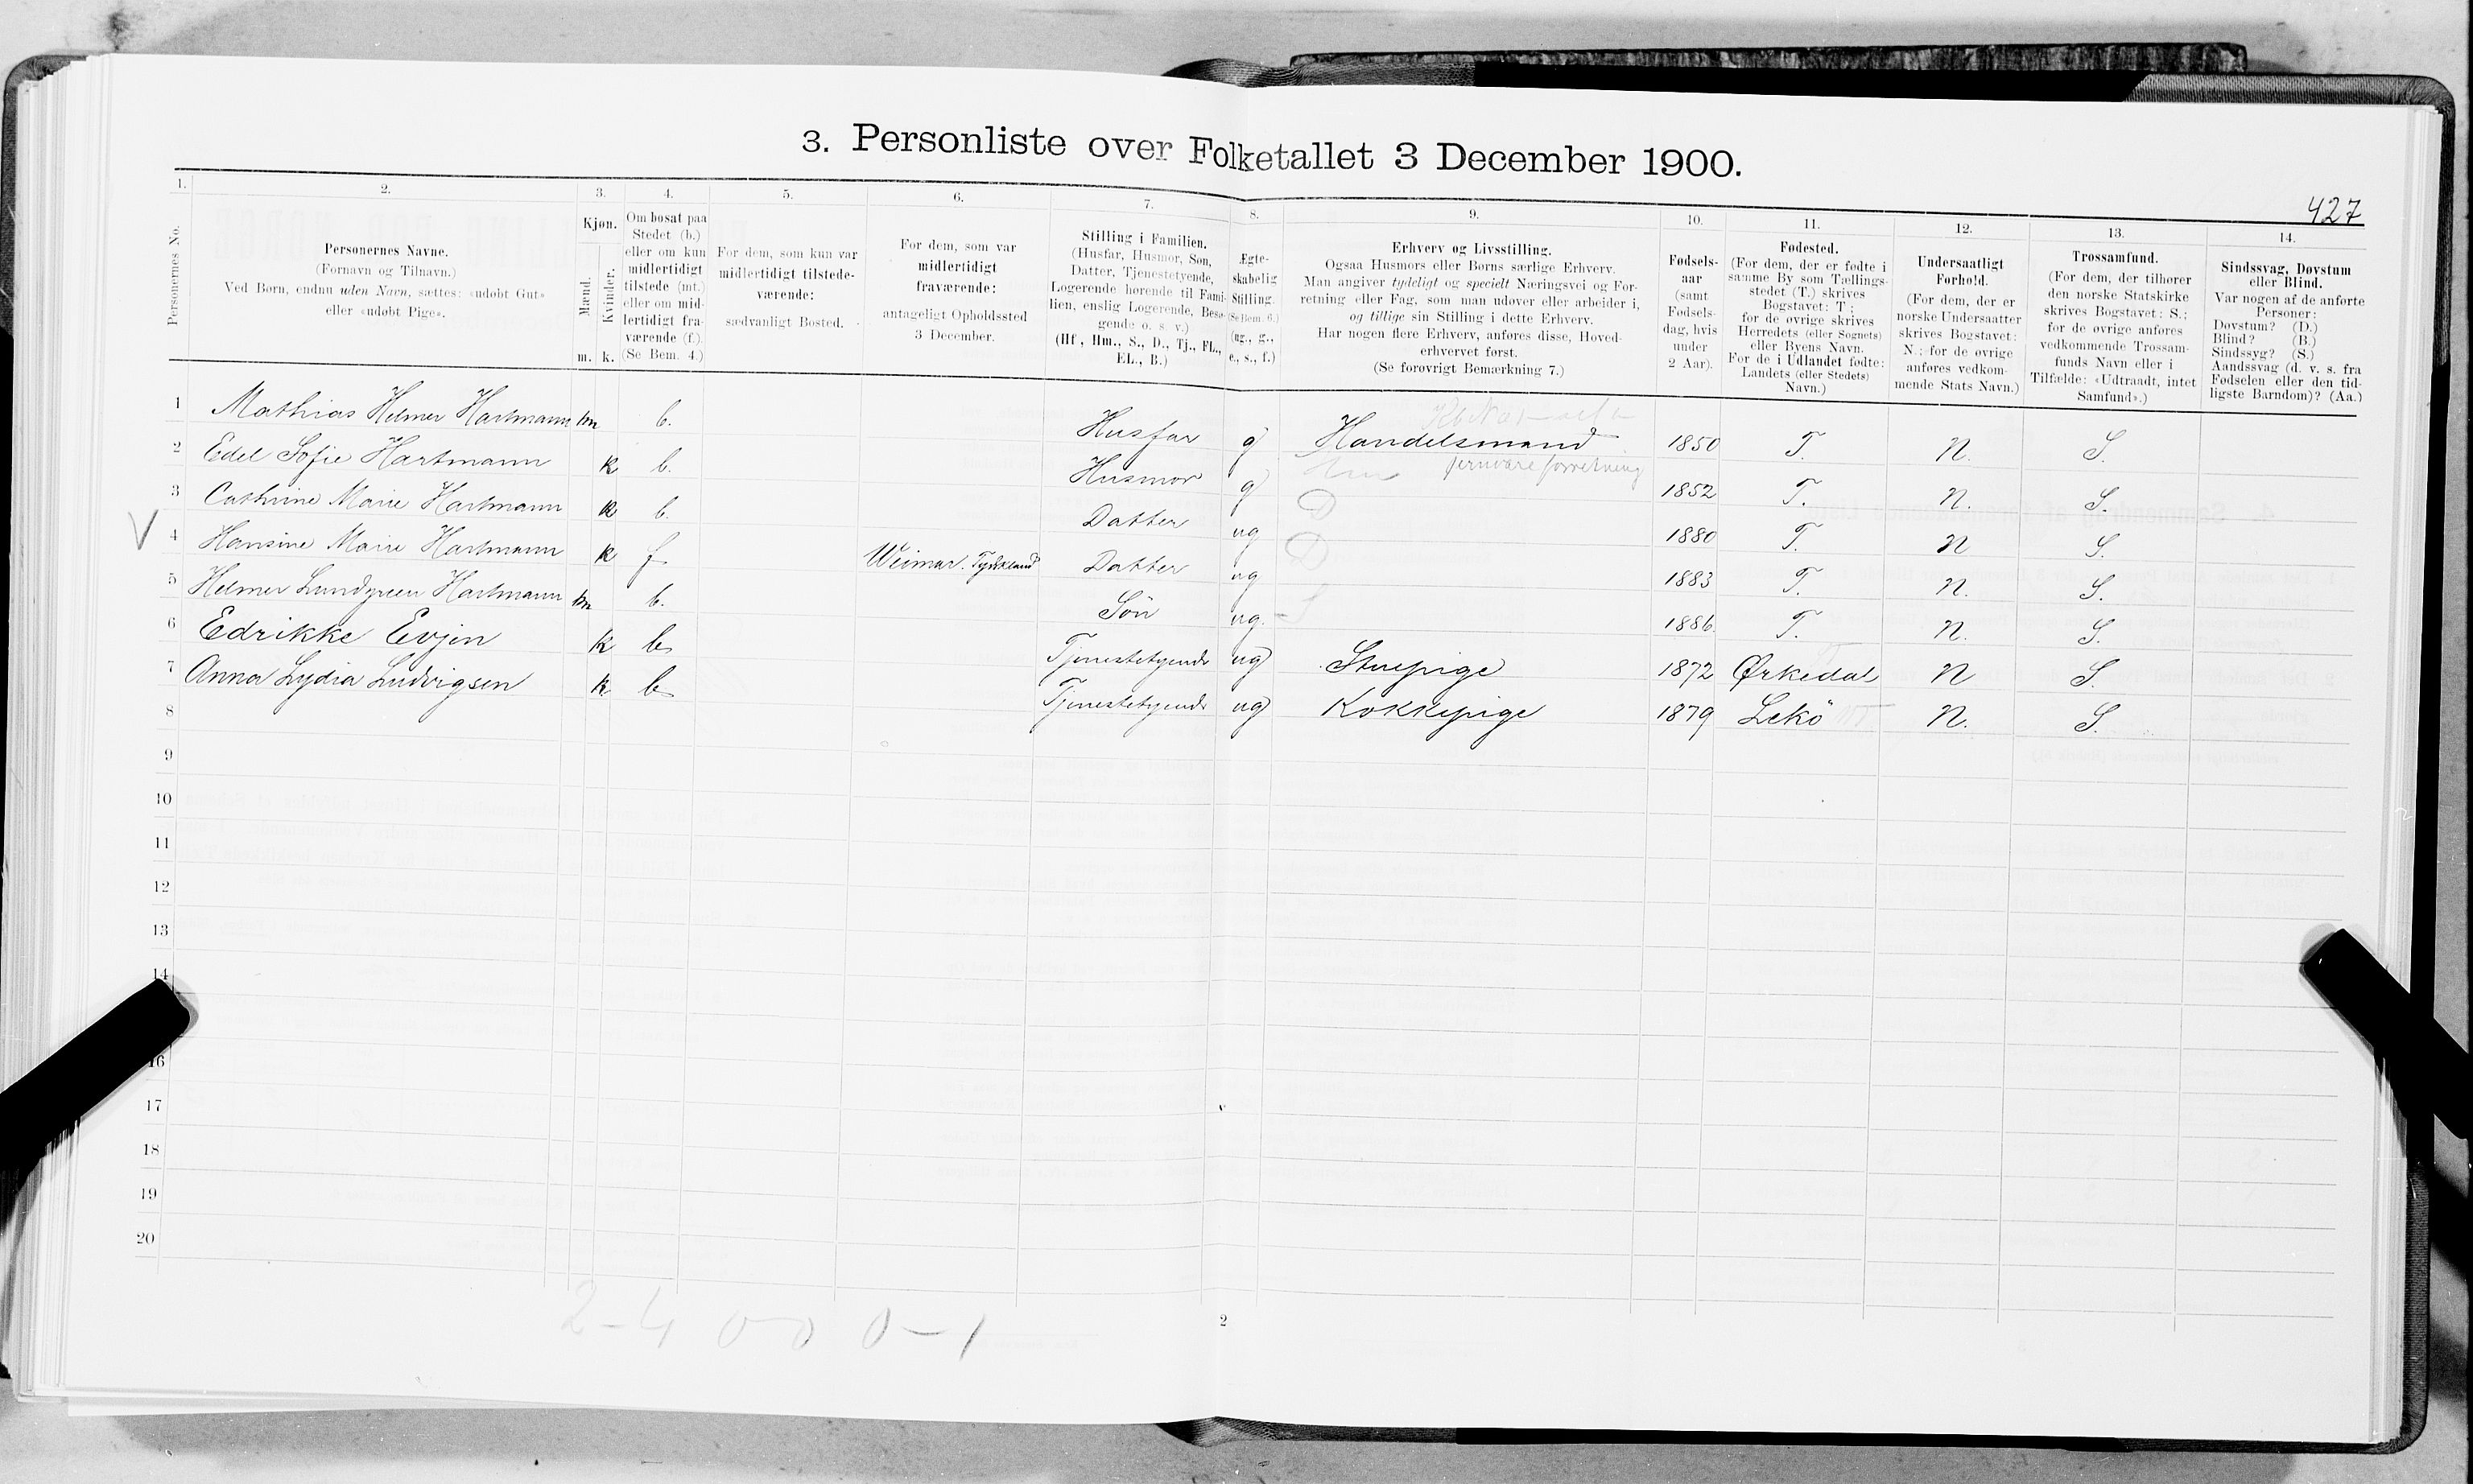 3. Personliste over Folketallet 3 December 1900.
427
1. 2. 3. 4. 5. 6. 7. 8. 9. 10. 11. 12. 13. 14.
Personernes No.
Personernes Navne.
(Fornavn og Tilnavn.)
Ved Børn, endnu uden Navn, sættes: «udøbt Gut»
eller «udøbt Pige».
Kjøn.
Mænd. Kvinder.
m. k.
Om bosat paa
Stedet (b.)
eller om kun
midlertidigt
tilstede (mt.)
eller om mid-
lertidigt fra-
værende (f.)
(Se Bem. 4.)
For dem, som kun var
midlertidigt tilstede-
værende:
sædvanligt Bosted.
For dem, som var
midlertidigt
fraværende:
antageligt Opholdssted
3 December.
Stilling i Familien.
(Husfar, Husmor, Søn,
Datter, Tjenestetyende,
Logerende hørende til Fami-
lien, enslig Logerende, Besø-
gende o. s. v.)
(Hf., Hm., S., D., Tj., FL.,
EL., B.)
Ægte-
skabelig
Stilling.
(Se Bem. 6.)
(ug., g.,
e., s., f.)
Erhverv og Livsstilling.
Ogsaa Husmors eller Børns særlige Erhverv.
Man angiver tydeligt og specielt Næringsvei og For-
retning eller Fag, som man udøver eller arbeider i,
og tillige sin Stilling i dette Erhverv.
Har nogen flere Erhverv, anføres disse, Hoved-
erhvervet først.
(Se forøvrigt Bemærkning 7.)
Fødsels-
aar
(samt
Fødsels-
dag, hvis
under
2 Aar).
Fødested.
(For dem, der er fødte i
samme By som Tællings-
stedet (T.) skrives
Bogstavet: T;
for de øvrige skrives
Herredets (eller Sognets)
eller Byens Navn.
For de i Udlandet fødte:
Landets (eller Stedets)
Navn.)
Undersaatligt
Forhold.
(For dem, der er
norske Undersaatter
skrives Bogstavet:
N.; for de øvrige
anføres vedkom-
mende Stats Navn.)
Trossamfund.
(For dem, der tilhører
den norske Statskirke
skrives Bogstavet: S.;
for de øvrige anføres
vedkommende Trossam-
funds Navn eller i
Tilfælde: «Udtraadt, intet
Samfund».)
Sindssvag, Døvstum
eller Blind.
Var nogen af de anførte
Personer:
Døvstum? (D.)
Blind? (B.)
Sindssyg? (S.)
Aandssvag (d. v. s. fra
Fødselen eller den tid-
ligste Barndom)? (Aa.)
1 Mathias Helmer Hartmann m b. Husfar g Handelsmand 1850 T. N. S.
jernvareforretning
2 Edel Sofie Hartmann k b. Husmor g 1852 T. N. S.
3 Cathrine Marie Hartmann k b. Datter ug D 1880 T. N S.
V 4 Hansine Marie Hartmann k f Weimar. Tydskland Datter ug D 1883 T. N. S.
5 Helmer Lundgreen Hartmann m b. Søn ug. S 1886. T. N. S.
6 Edrikke Evjen k b Tjenestetyende ug Stuepige 1872 Ørkedal N S.
7 Anna Lydia Ludvigsen k b Tjenestetyende ug Kokkepige 1879 Lekö N. S.
8
9
10
11
12
13
14
16
17
18
19
20
2-4 0-0 0-1
2